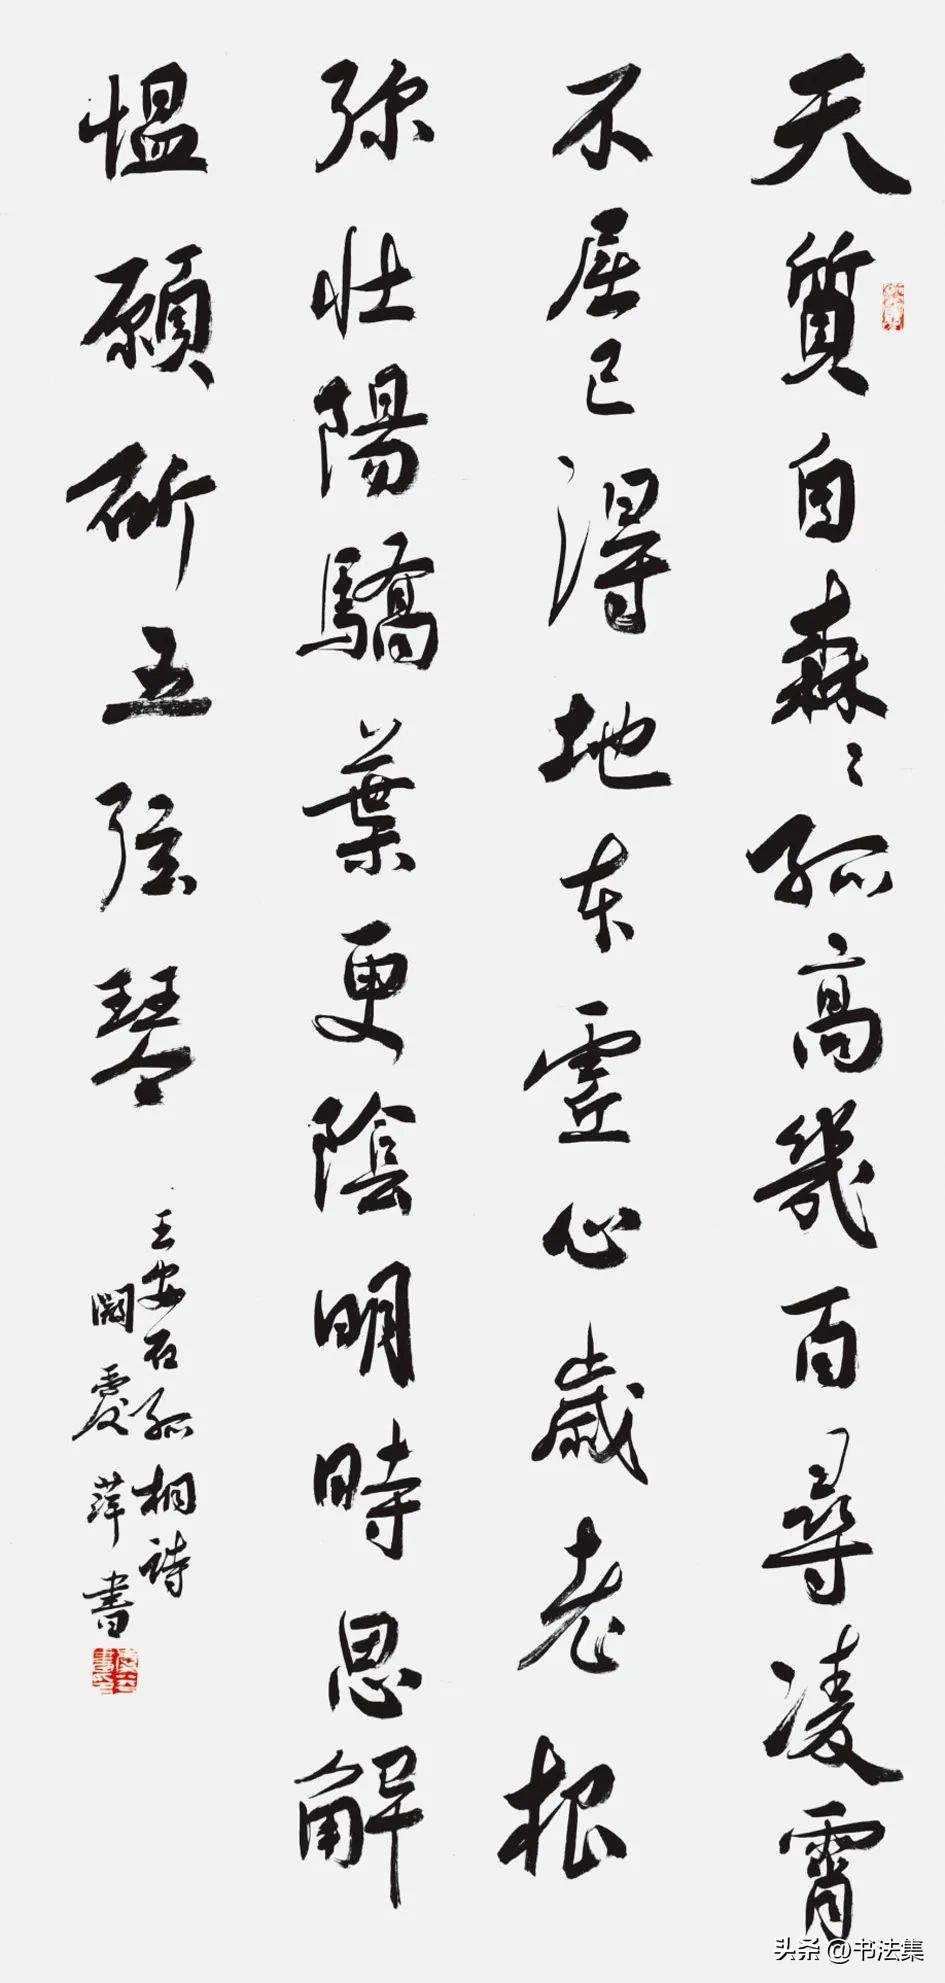 天質自森〻孤高幾百尋凌霄
不屈己得地本虛心歲老根
弥壯陽驕葉更陰明時思解
愠願斫五弦琴
王安石孤桐詩
闕處萍書
头条 @书法集